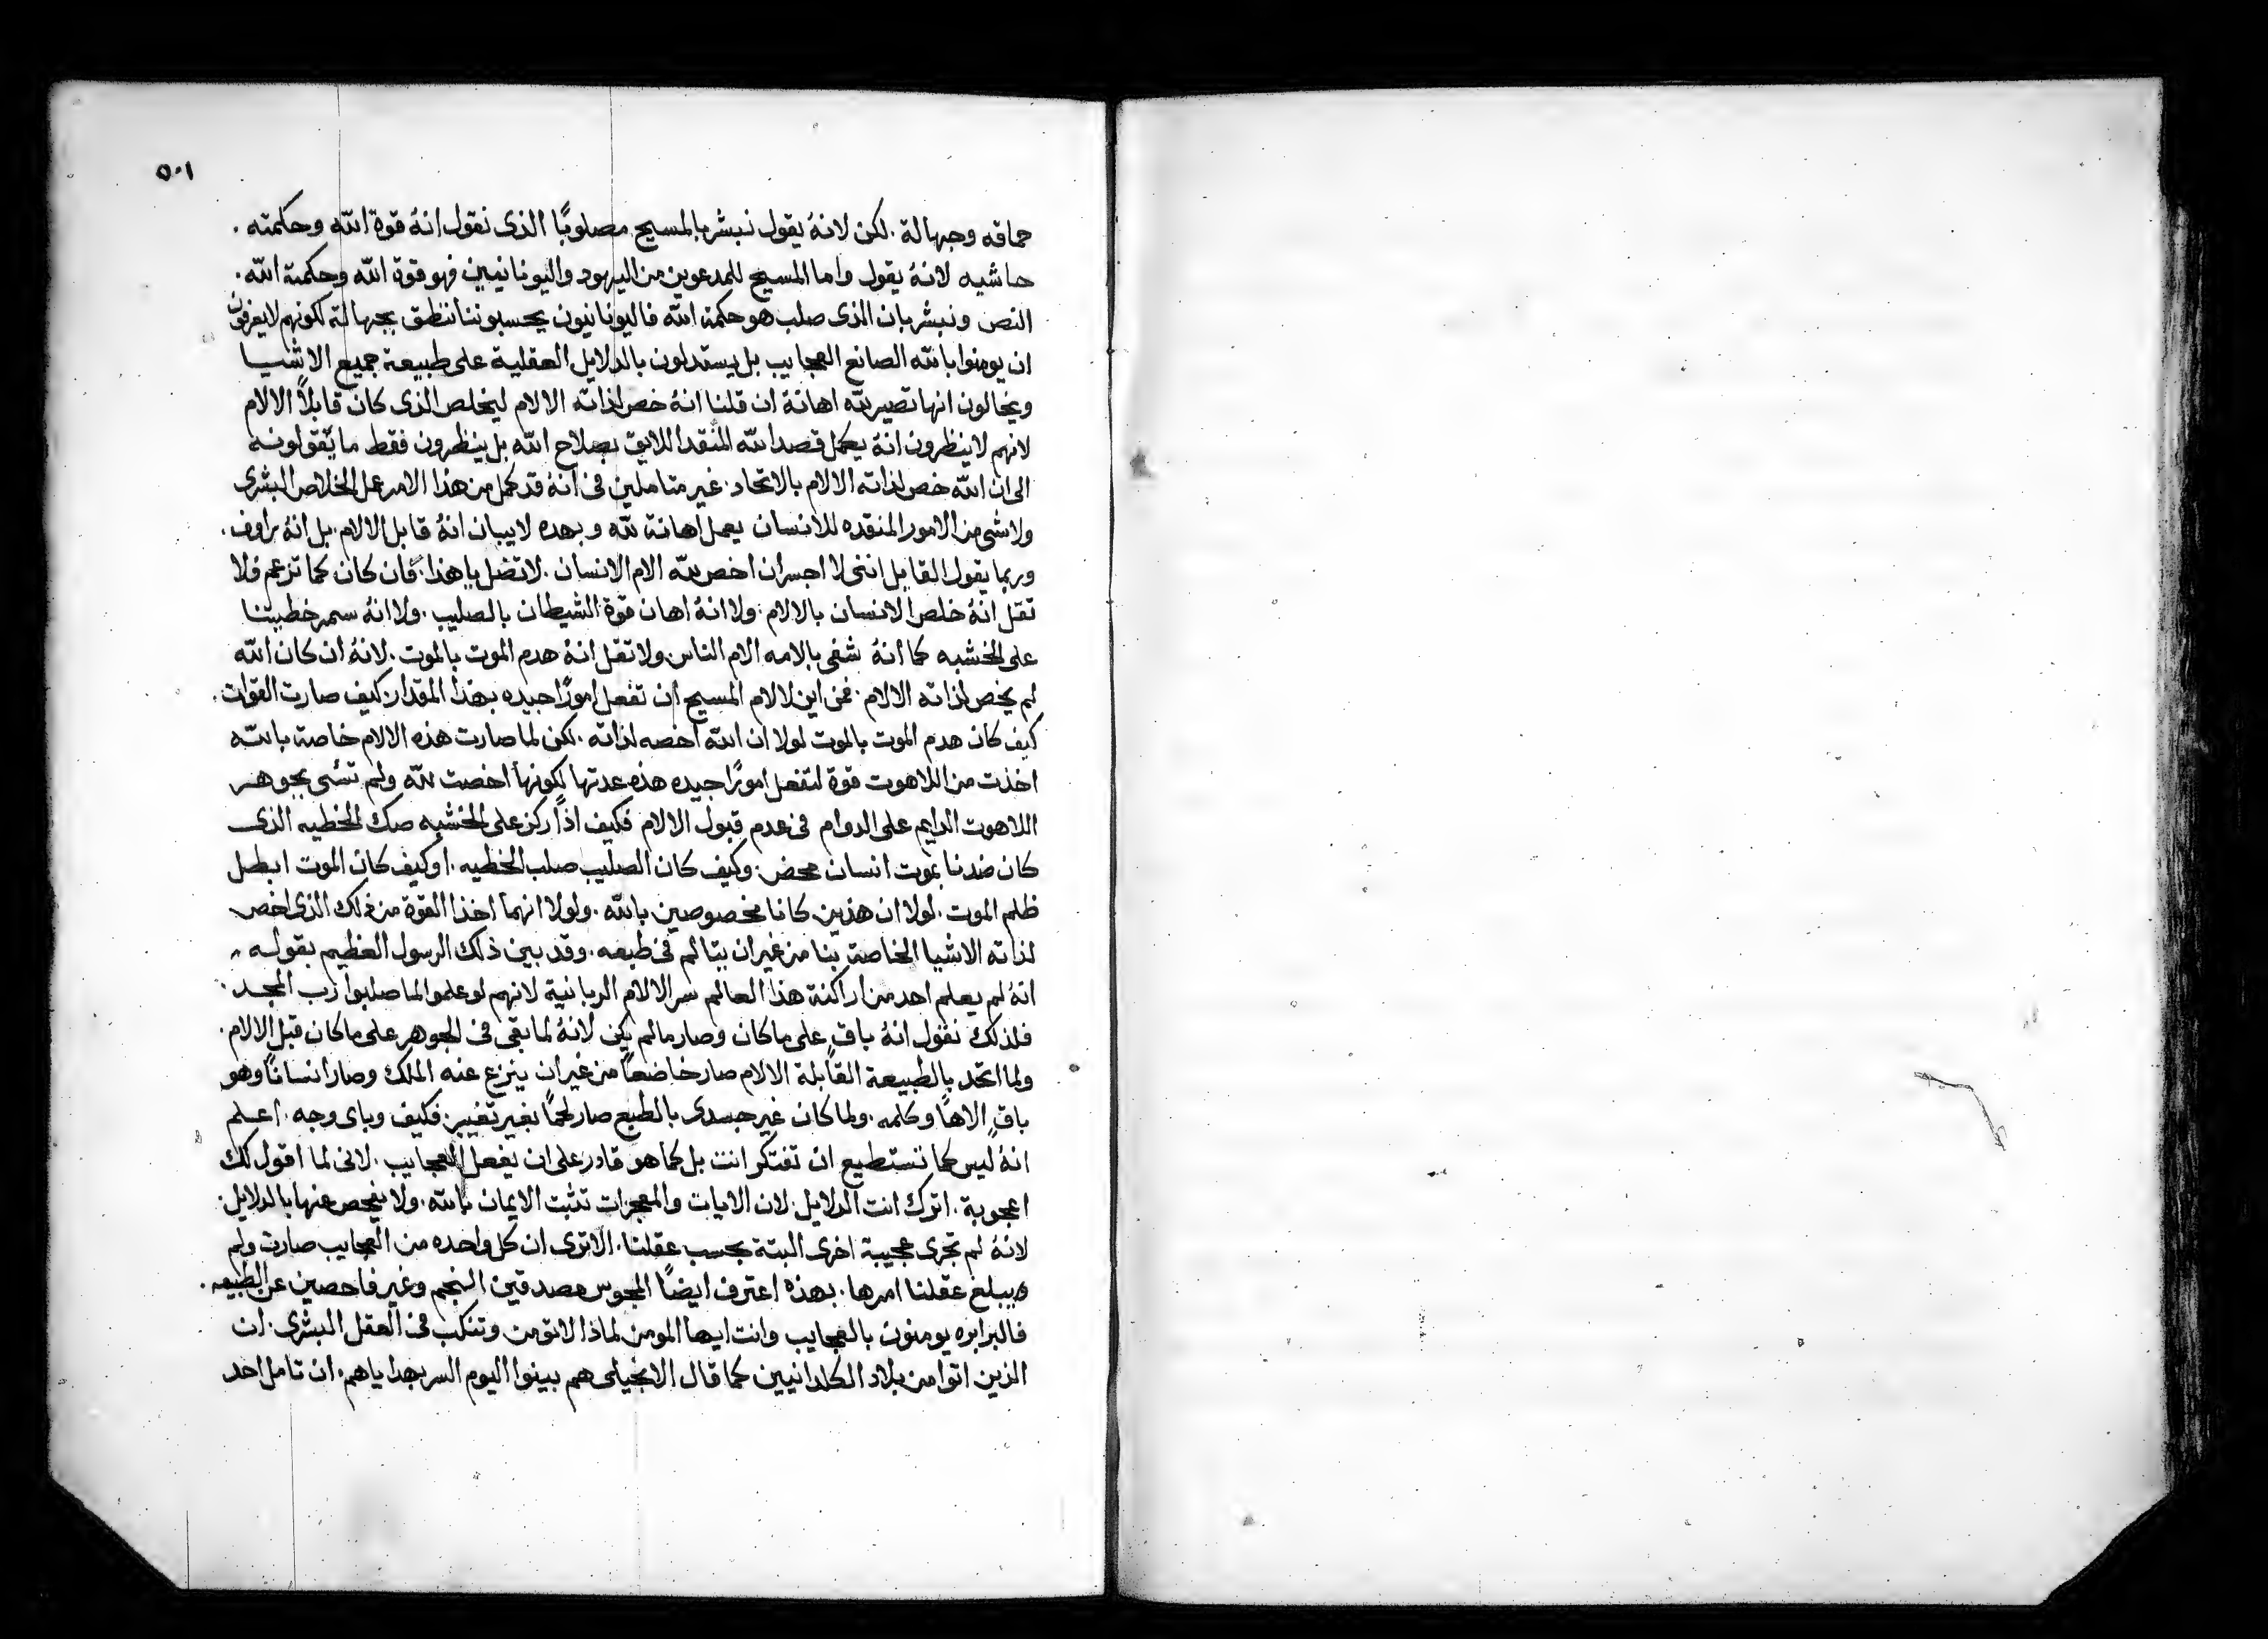 ٥٠١
حماقه وجهالة . لكن لانهُ يقول نبشر بالمسيح مصلوبًا الذى نقول انهُ قوة الله وحكمته .
حاشيه لانهُ يقول واما المسيح للمدعوين من اليهود واليونانيين فهو قوة الله وحكمة الله .
النص ونبشر بان الذى صلب هو حكمة الله فاليونانيون يحسبوننا ننطق بجهالة لكونهم لايعرفون
ان يومنوا بالله الصانع العجايب بل يستدلون بالدلايل العقلية على طبيعة جميع الاشيا
ويخالون انها تصير لله اهانة ان قلنا انهُ خص لذاته الالام ليخلص الذى كان قابلاً الالام
لانهم لاينظرون انهُ يكمل قصد الله المنقد اللايق بصلاح الله بل ينظرون فقط ما يقولونه
الى ان الله خص لذاته الالام بالاتحاد . غير متاملين فى انهُ قد كمل من هذا الامر عمل الخلاص البشرى
ولاشى من الامور المنقده للانسان يعمل اهانة لله وبهده لايبان انهُ قابل الالام . بل انهُ براوف .
وربما يقول القايل اننى لا اجسر ان اخص لله الام الانسان . لاتضل ياهذا . فان كان كما تزعم فلا
تقل انهُ خلص الانسان بالالام . ولا انهُ اهان قوة الشيطان بالصليب . ولا انهُ سمر خطيتنا
على الخشبه كما انهُ شفى بالامه الام الناس . ولا تقل انهُ هدم الموت بالموت . لانهُ ان كان الله
لم يخص لذاته الالام . فمن اين لالام المسيح ان تفعل امورًا جيده بهذا المقدار كيف صارت القوات .
كيف كان هدم الموت بالموت لولا ان الله اخصه لذاته . لكن لما صارت هذه الالام خاصة بالله
اخذت من اللاهوت قوة لتفعل امورًا جيده هذه عدتها لكونها اخصت لله ولم تسى بجوهر
اللاهوت الدايم على الدوام فى عدم قبول الالام فكيف اذًا ركز على الخشبه صك الخطيه الذى
كان ضدنا بموت انسان محض . وكيف كان الصليب صلب الخطيه . او كيف كان الموت ابطل
ظلم الموت . لولا ان هذين كانا مخصوصين بالله . ولولا انهما اخذا القوة من ذلك الذى اخص
لذاته الاشيا الخاصة بنا من غير ان يتالم فى طبعه . وقد بين ذلك الرسول العظيم بقوله
انهُ لم يعلم احد من اراكنة هذا العالم سر الالام الربانية لانهم لو علموا لما صلبوا رب المجد .
فلذلك نقول انهُ باقٍ على ما كان وصار مالم يكن لانهُ لما بقى فى الجوهر على ماكان قبل الالام .
ولما اتحد بالطبيعة القابلة الالام صار خاضعًا من غير ان ينزع عنه الملك وصار انسانًا وهو
باقٍ الاهًا وكلمه . ولما كان غير جسدى بالطبع صار لحمًا بغير تغيير . فكيف وباى وجه . اعلم
انهُ ليس كما تستطيع ان تفتكر انت بل كما هو قادر على ان يفعل العجايب . لانى لما اقول لك
اعجوبة . اترك انت الدلايل . لان الايات والمعجزات تثبت الايمان بالله . ولا يفحص عنها بالدلايل .
لانهُ لم تجرى عجيبة اخرى البتة بحسب عقلنا . الا ترى ان كل واحده من العجايب صارت ولم
يبلغ عقلنا امرها . بهذه اعترف ايضًا المجوس مصدقين النجم وغير فاحصين عن الطبيعه .
فالبرابره يومنون بالعجايب وانت ايها المومن لماذا لاتومن وتنكب فى العقل البشرى . ان
الذين اتوا من بلاد الكلدانيين كما قال الانجيلى هم بينوا اليوم السر بهدا ياهم . ان تامل احد